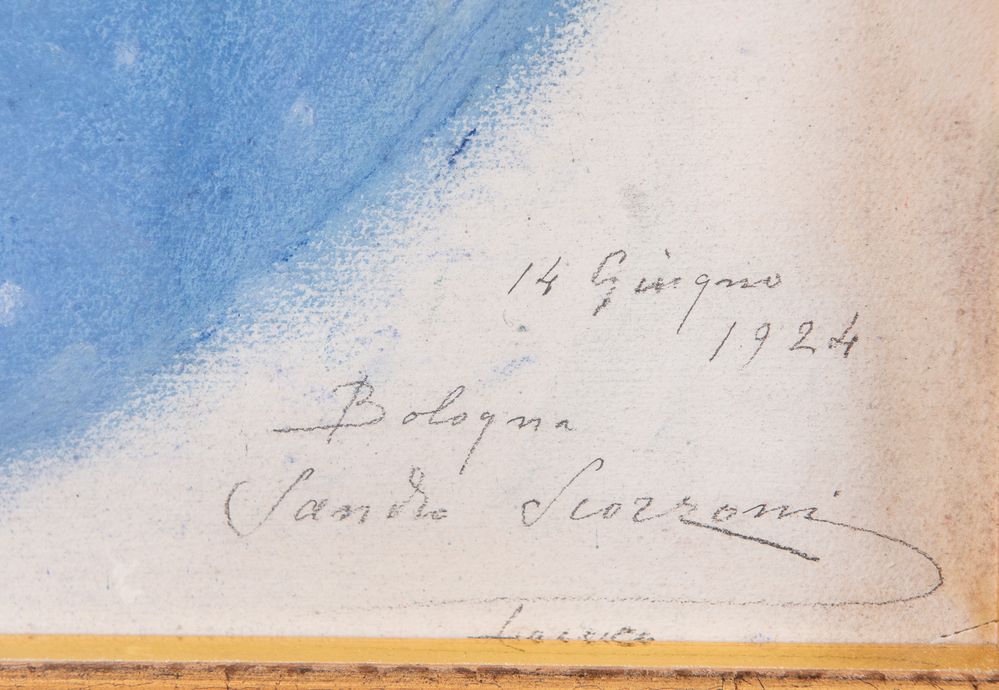 14 Giugno
1924
Bologna
Sandro Scorzoni